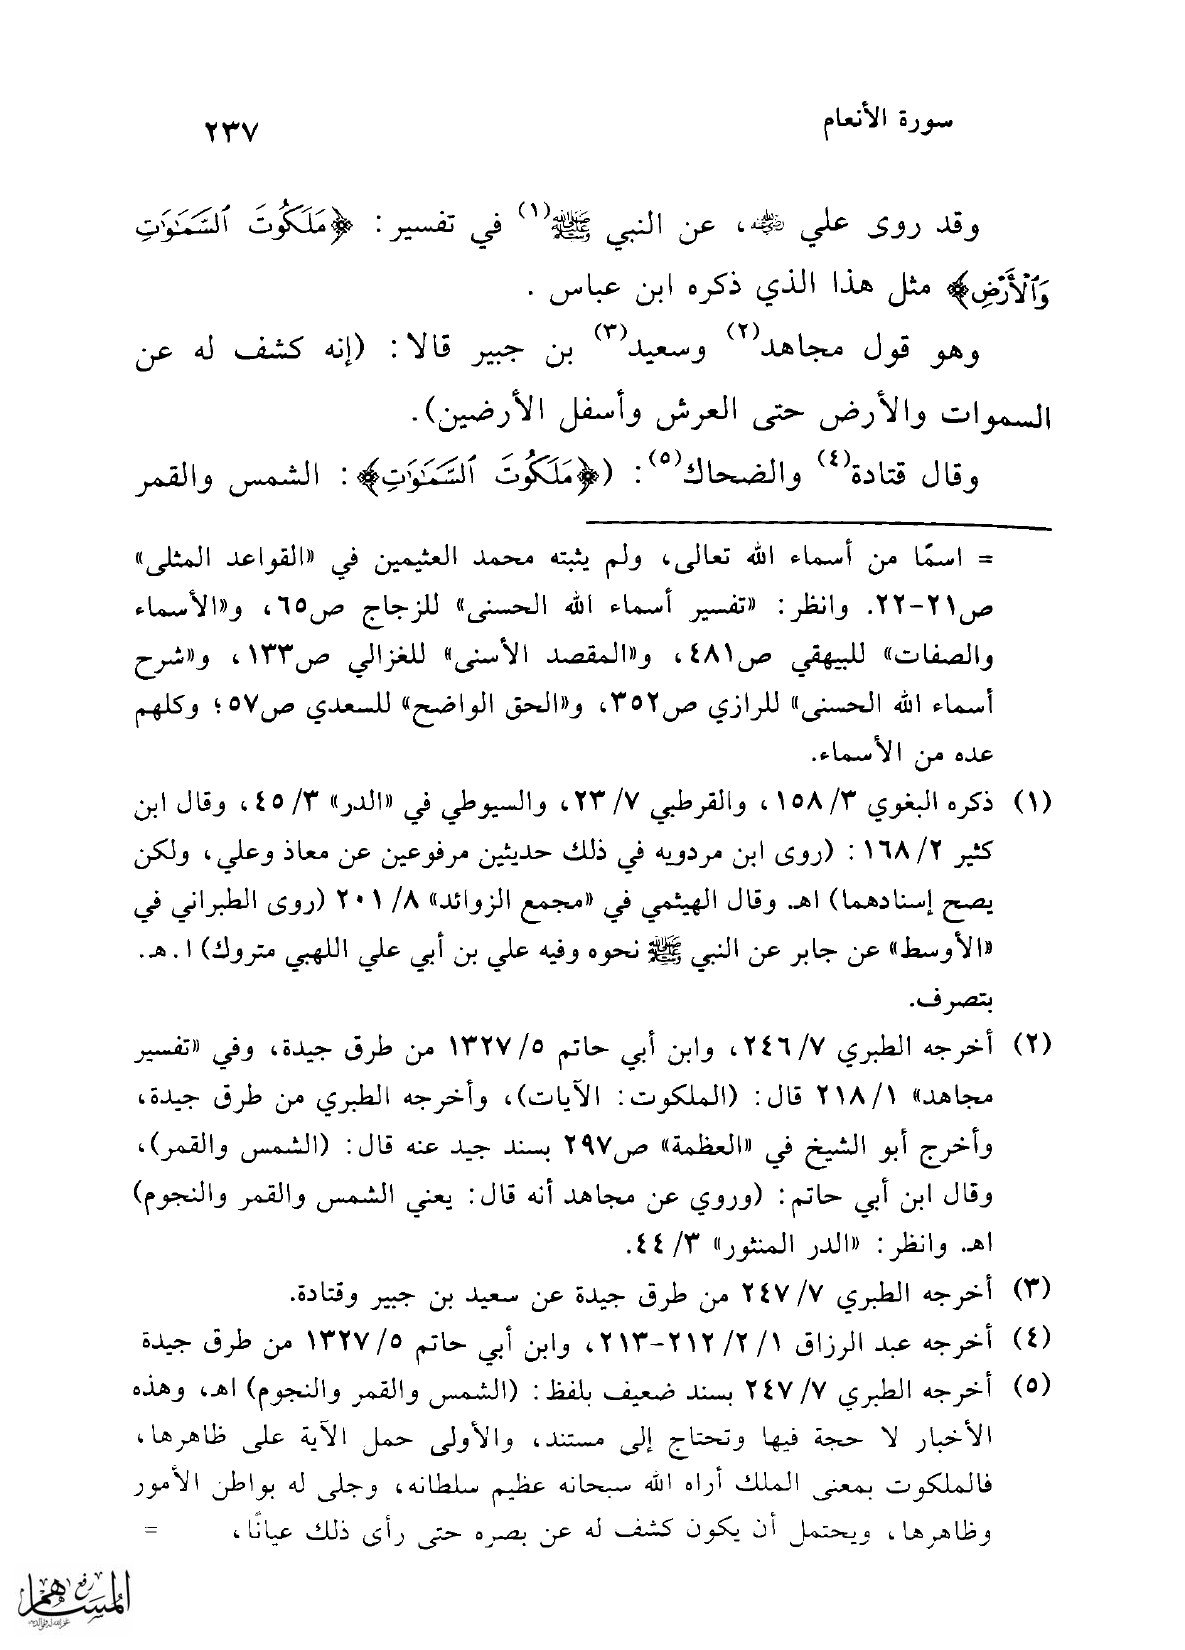 سورة الأنعام
٢٣٧
وقد روى علي رضي الله عنه، عن النبي ﷺ(١) في تفسير: ﴿مَلَكُوتَ ٱلسَّمَٰوَٰتِ
وَٱلْأَرْضِ﴾ مثل هذا الذي ذكره ابن عباس .
وهو قول مجاهد(٢) وسعيد(٣) بن جبير قالا: (إنه كشف له عن
السموات والأرض حتى العرش وأسفل الأرضين).
وقال قتادة(٤) والضحاك(٥): (﴿مَلَكُوتَ ٱلسَّمَٰوَٰتِ﴾: الشمس والقمر
= اسمًا من أسماء الله تعالى، ولم يثبته محمد العثيمين في «القواعد المثلى»
ص٢١-٢٢. وانظر: «تفسير أسماء الله الحسنى» للزجاج ص٦٥، و«الأسماء
والصفات» للبيهقي ص٤٨١، و«المقصد الأسنى» للغزالي ص١٣٣، و«شرح
أسماء الله الحسنى» للرازي ص٣٥٢، و«الحق الواضح» للسعدي ص٥٧؛ وكلهم
عده من الأسماء.
(١) ذكره البغوي ٣/ ١٥٨، والقرطبي ٧/ ٢٣، والسيوطي في «الدر» ٣/ ٤٥، وقال ابن
كثير ٢/ ١٦٨: (روى ابن مردويه في ذلك حديثين مرفوعين عن معاذ وعلي، ولكن
يصح إسنادهما) اهـ. وقال الهيثمي في «مجمع الزوائد» ٨/ ٢٠١ (روى الطبراني في
«الأوسط» عن جابر عن النبي ﷺ نحوه وفيه علي بن أبي علي اللهبي متروك) ا.هـ.
بتصرف.
(٢) أخرجه الطبري ٧/ ٢٤٦، وابن أبي حاتم ٥/ ١٣٢٧ من طرق جيدة، وفي «تفسير
مجاهد» ١/ ٢١٨ قال: (الملكوت: الآيات)، وأخرجه الطبري من طرق جيدة،
وأخرج أبو الشيخ في «العظمة» ص٢٩٧ بسند جيد عنه قال: (الشمس والقمر)،
وقال ابن أبي حاتم: (وروي عن مجاهد أنه قال: يعني الشمس والقمر والنجوم)
اهـ. وانظر: «الدر المنثور» ٣/ ٤٤.
(٣) أخرجه الطبري ٧/ ٢٤٧ من طرق جيدة عن سعيد بن جبير وقتادة.
(٤) أخرجه عبد الرزاق ١/ ٢/ ٢١٢-٢١٣، وابن أبي حاتم ٥/ ١٣٢٧ من طرق جيدة
(٥) أخرجه الطبري ٧/ ٢٤٧ بسند ضعيف بلفظ: (الشمس والقمر والنجوم) اهـ، وهذه
الأخبار لا حجة فيها وتحتاج إلى مستند، والأولى حمل الآية على ظاهرها،
فالملكوت بمعنى الملك أراه الله سبحانه عظيم سلطانه، وجلى له بواطن الأمور
وظاهرها، ويحتمل أن يكون كشف له عن بصره حتى رأى ذلك عيانًا، =
رفع
المساهم